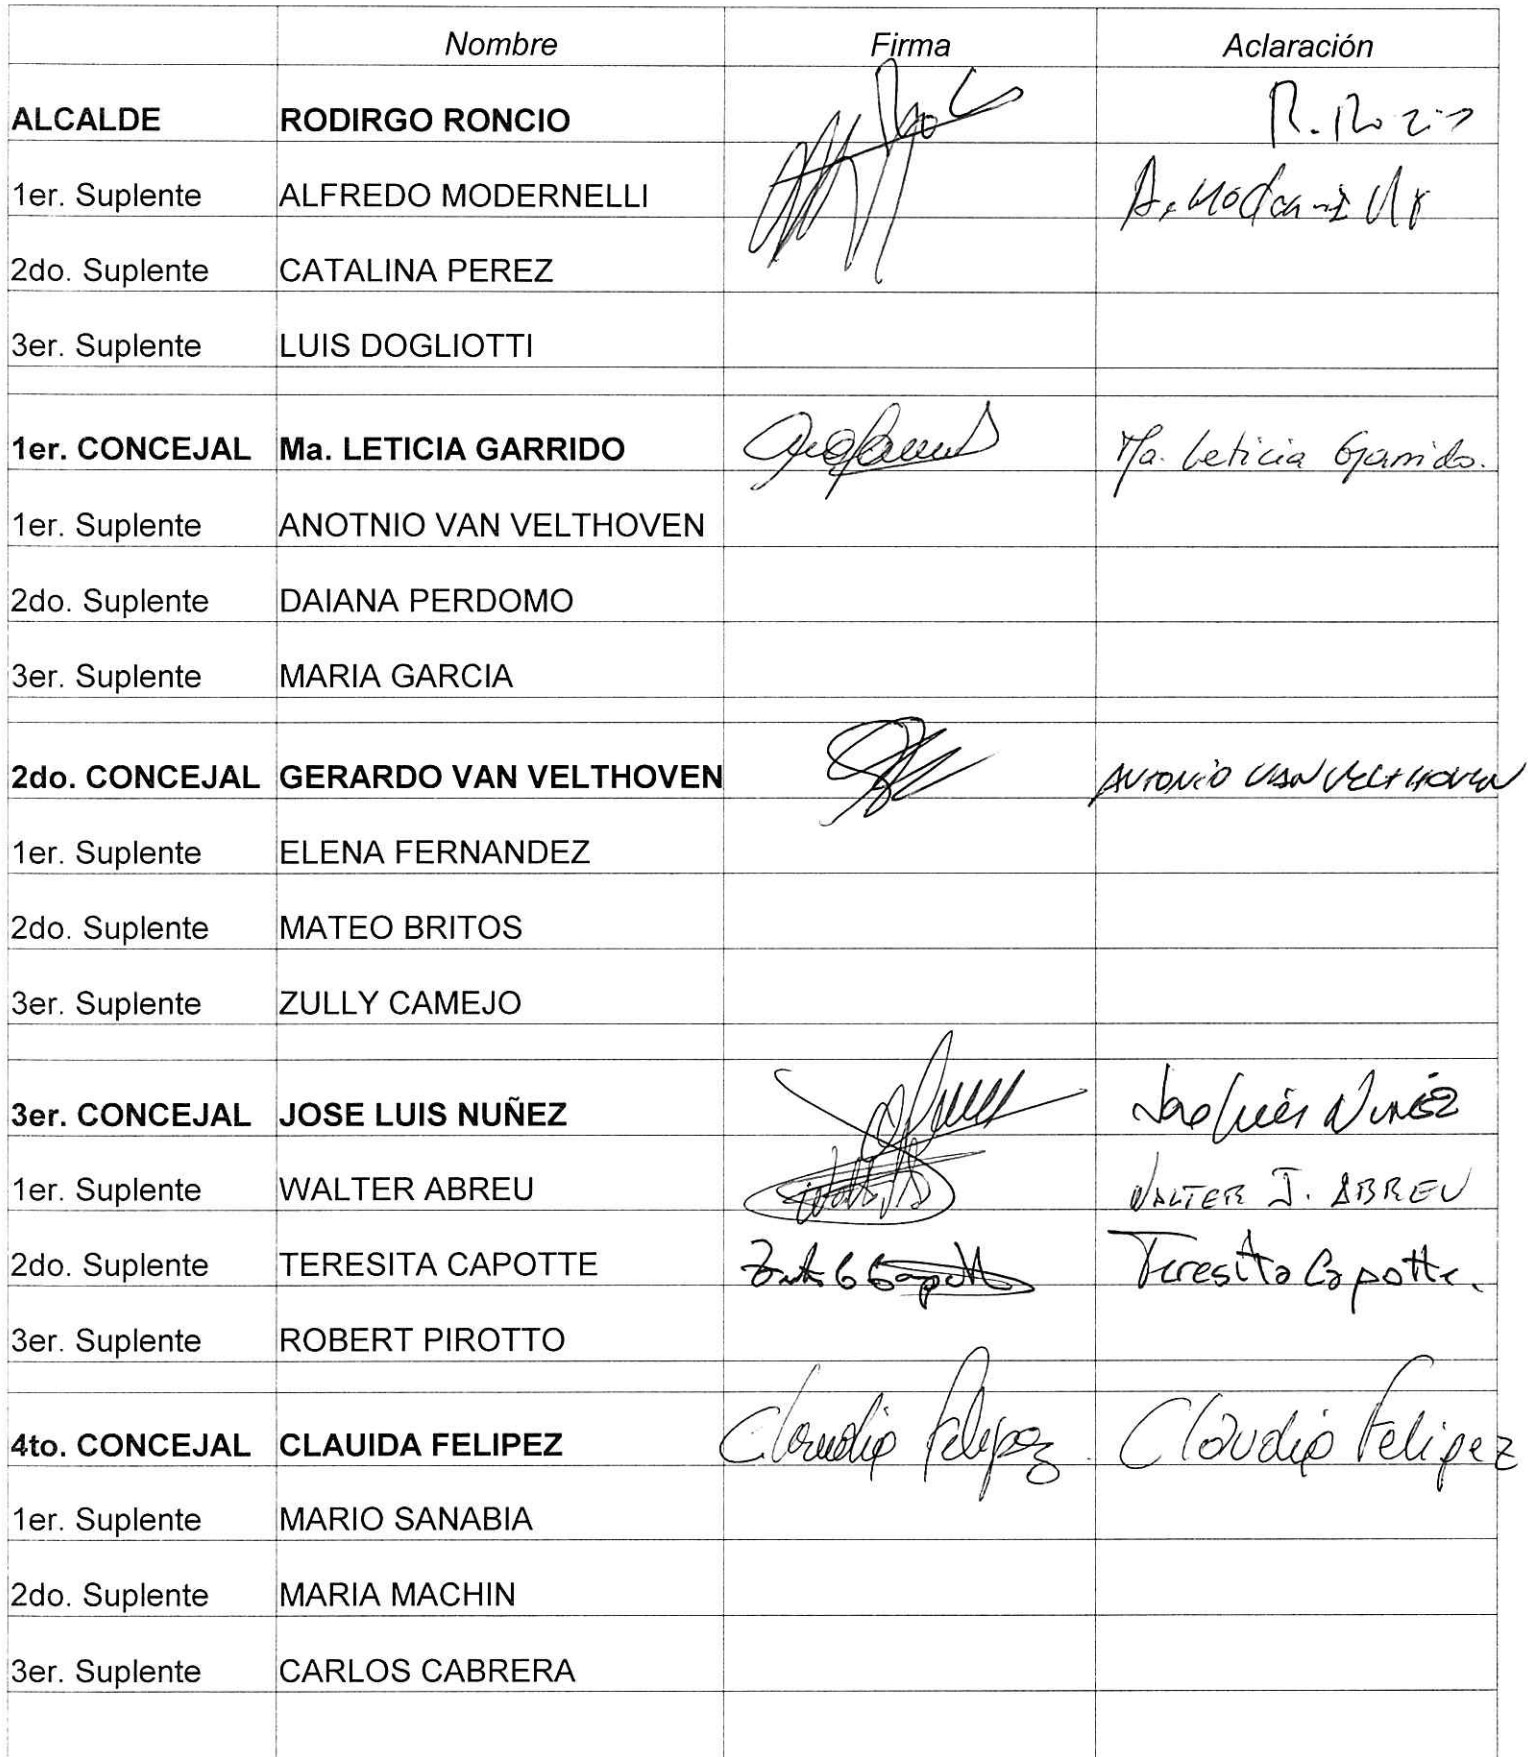 Nombre Firma Aclaración
ALCALDE RODIRGO RONCIO
1er. Suplente ALFREDO MODERNELLI
2do. Suplente CATALINA PEREZ
3er. Suplente LUIS DOGLIOTTI
1er. CONCEJAL Ma. LETICIA GARRIDO Ma. Leticia Garrido.
1er. Suplente ANOTNIO VAN VELTHOVEN
2do. Suplente DAIANA PERDOMO
3er. Suplente MARIA GARCIA
2do. CONCEJAL GERARDO VAN VELTHOVEN ANTONIO VAN VELTHOVEN
1er. Suplente ELENA FERNANDEZ
2do. Suplente MATEO BRITOS
3er. Suplente ZULLY CAMEJO
3er. CONCEJAL JOSE LUIS NUÑEZ Jose Luis Nuñez
1er. Suplente WALTER ABREU WALTER J. ABREU
2do. Suplente TERESITA CAPOTTE Teresita Capotte.
3er. Suplente ROBERT PIROTTO
4to. CONCEJAL CLAUIDA FELIPEZ Claudia Felipez Claudia Felipez
1er. Suplente MARIO SANABIA
2do. Suplente MARIA MACHIN
3er. Suplente CARLOS CABRERA